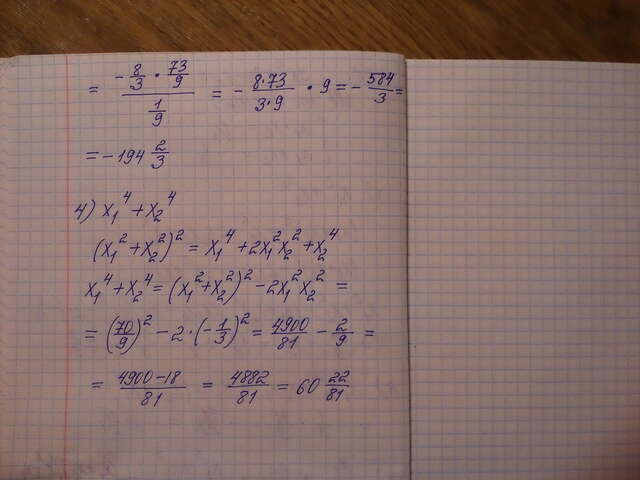 = (-8/3 · 73/9)/(1/9) = - (8·73)/(3·9) · 9 = - 584/3 =
= -194 2/3
4) x₁⁴ + x₂⁴
(x₁² + x₂²)² = x₁⁴ + 2x₁²x₂² + x₂⁴
x₁⁴ + x₂⁴ = (x₁² + x₂²)² - 2x₁²x₂² =
= (70/9)² - 2·(-1/3)² = 4900/81 - 2/9 =
= (4900-18)/81 = 4882/81 = 60 22/81